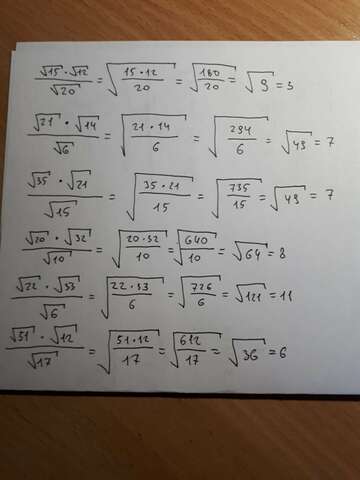 √15 · √12 / √20 = √(15 · 12 / 20) = √(180 / 20) = √9 = 3
√21 · √14 / √6 = √(21 · 14 / 6) = √(294 / 6) = √49 = 7
√35 · √21 / √15 = √(35 · 21 / 15) = √(735 / 15) = √49 = 7
√20 · √32 / √10 = √(20 · 32 / 10) = √(640 / 10) = √64 = 8
√22 · √33 / √6 = √(22 · 33 / 6) = √(726 / 6) = √121 = 11
√51 · √12 / √17 = √(51 · 12 / 17) = √(612 / 17) = √36 = 6